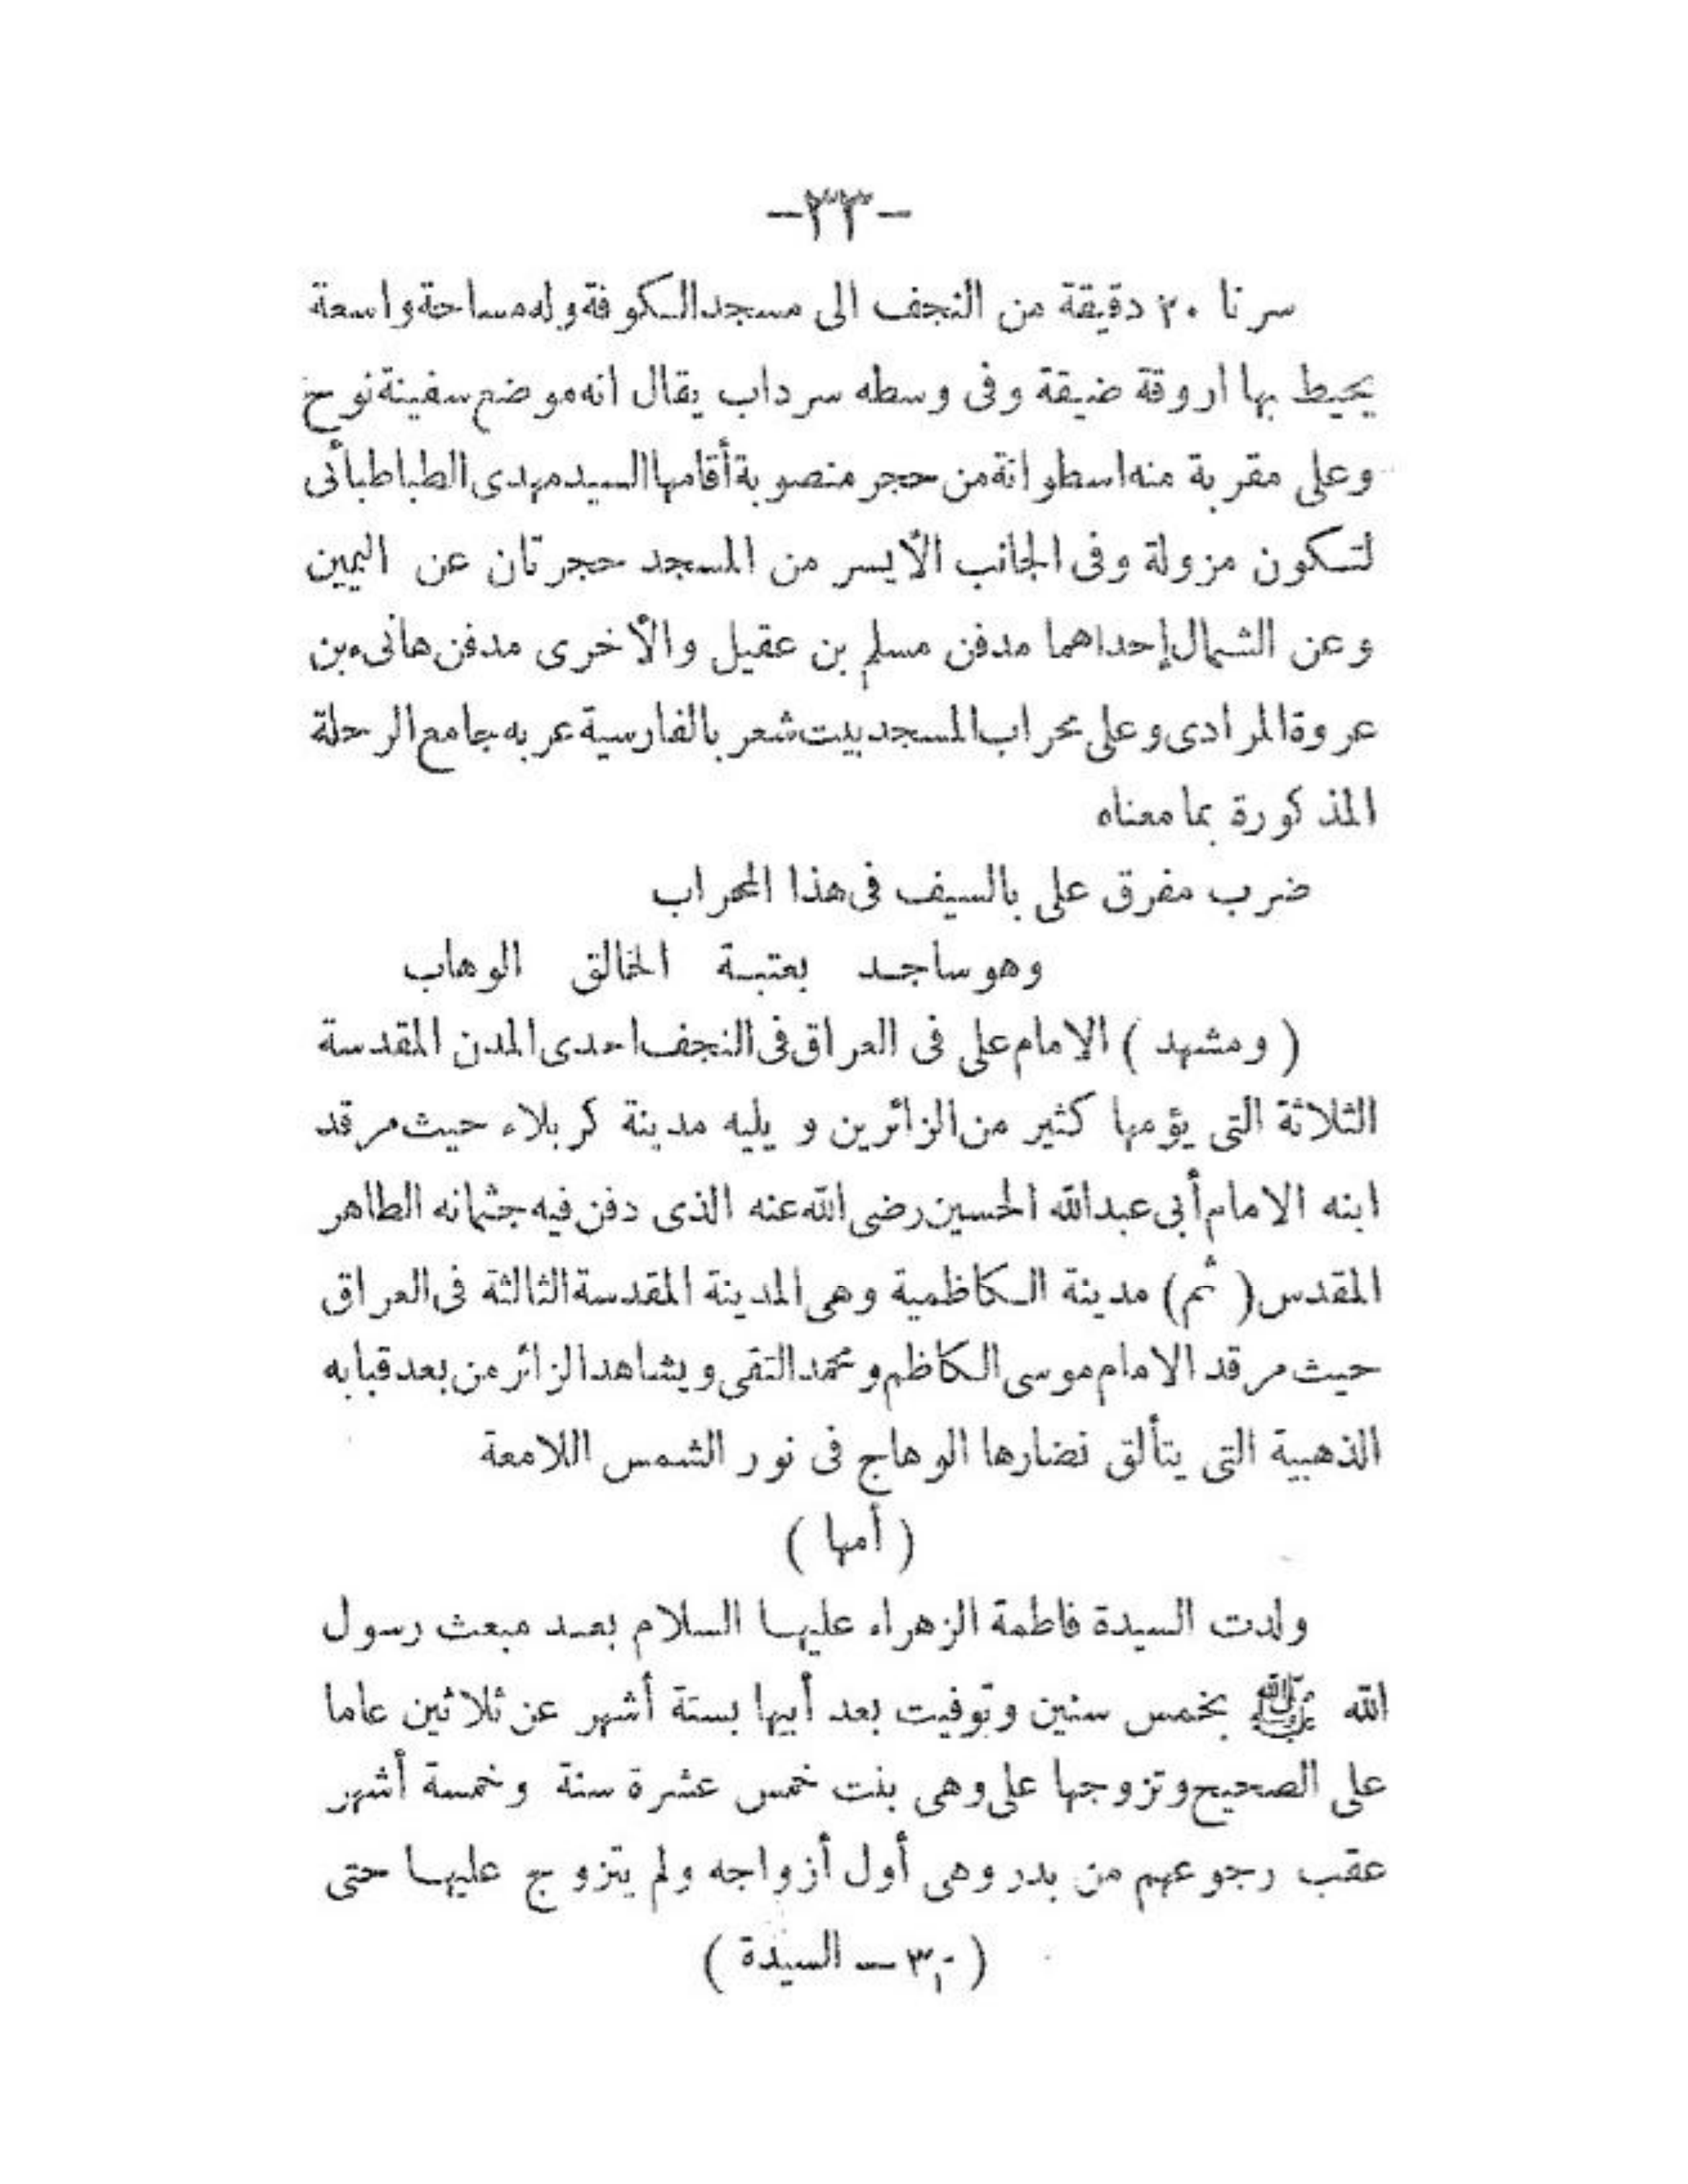 -٣٣-
سرنا ٣٠ دقيقة من النجف الى مسجد الكوفة وله مساحة واسعة
يحيط بها اروقة ضيقة وفى وسطه سرداب يقال انه موضع سفينة نوح
وعلى مقربة منه اسطوانة من حجر منصوبة أقامها السيد مهدى الطباطبائى
لتكون مزولة وفى الجانب الأيسر من المسجد حجرتان عن اليمين
وعن الشمال إحداهما مدفن مسلم بن عقيل والأخرى مدفن هانىء بن
عروة المرادى وعلى محراب المسجد بيت شعر بالفارسية عربه جامع الرحلة
المذكورة بما معناه
ضرب مفرق على بالسيف فى هذا المحراب
وهو ساجد بعتبة الخالق الوهاب
( ومشهد ) الامام على فى العراق فى النجف احدى المدن المقدسة
الثلاثة التى يؤمها كثير من الزائرين و يليه مدينة كربلاء حيث مرقد
ابنه الامام أبى عبدالله الحسين رضى الله عنه الذى دفن فيه جثمانه الطاهر
المقدس ( ثم ) مدينة الكاظمية وهى المدينة المقدسة الثالثة فى العراق
حيث مرقد الامام موسى الكاظم و محمد التقى ويشاهد الزائر من بعد قبابه
الذهبية التى يتألق نضارها الوهاج فى نور الشمس اللامعة
( أمها )
ولدت السيدة فاطمة الزهراء عليها السلام بعد مبعث رسول
الله ﷺ بخمس سنين وتوفيت بعد أبيها بستة أشهر عن ثلاثين عاما
على الصحيح وتزوجها على وهى بنت خمس عشرة سنة وخمسة أشهر
عقب رجوعهم من بدر وهى أول أزواجه ولم يتزوج عليها حتى
( ٣ — السيدة )